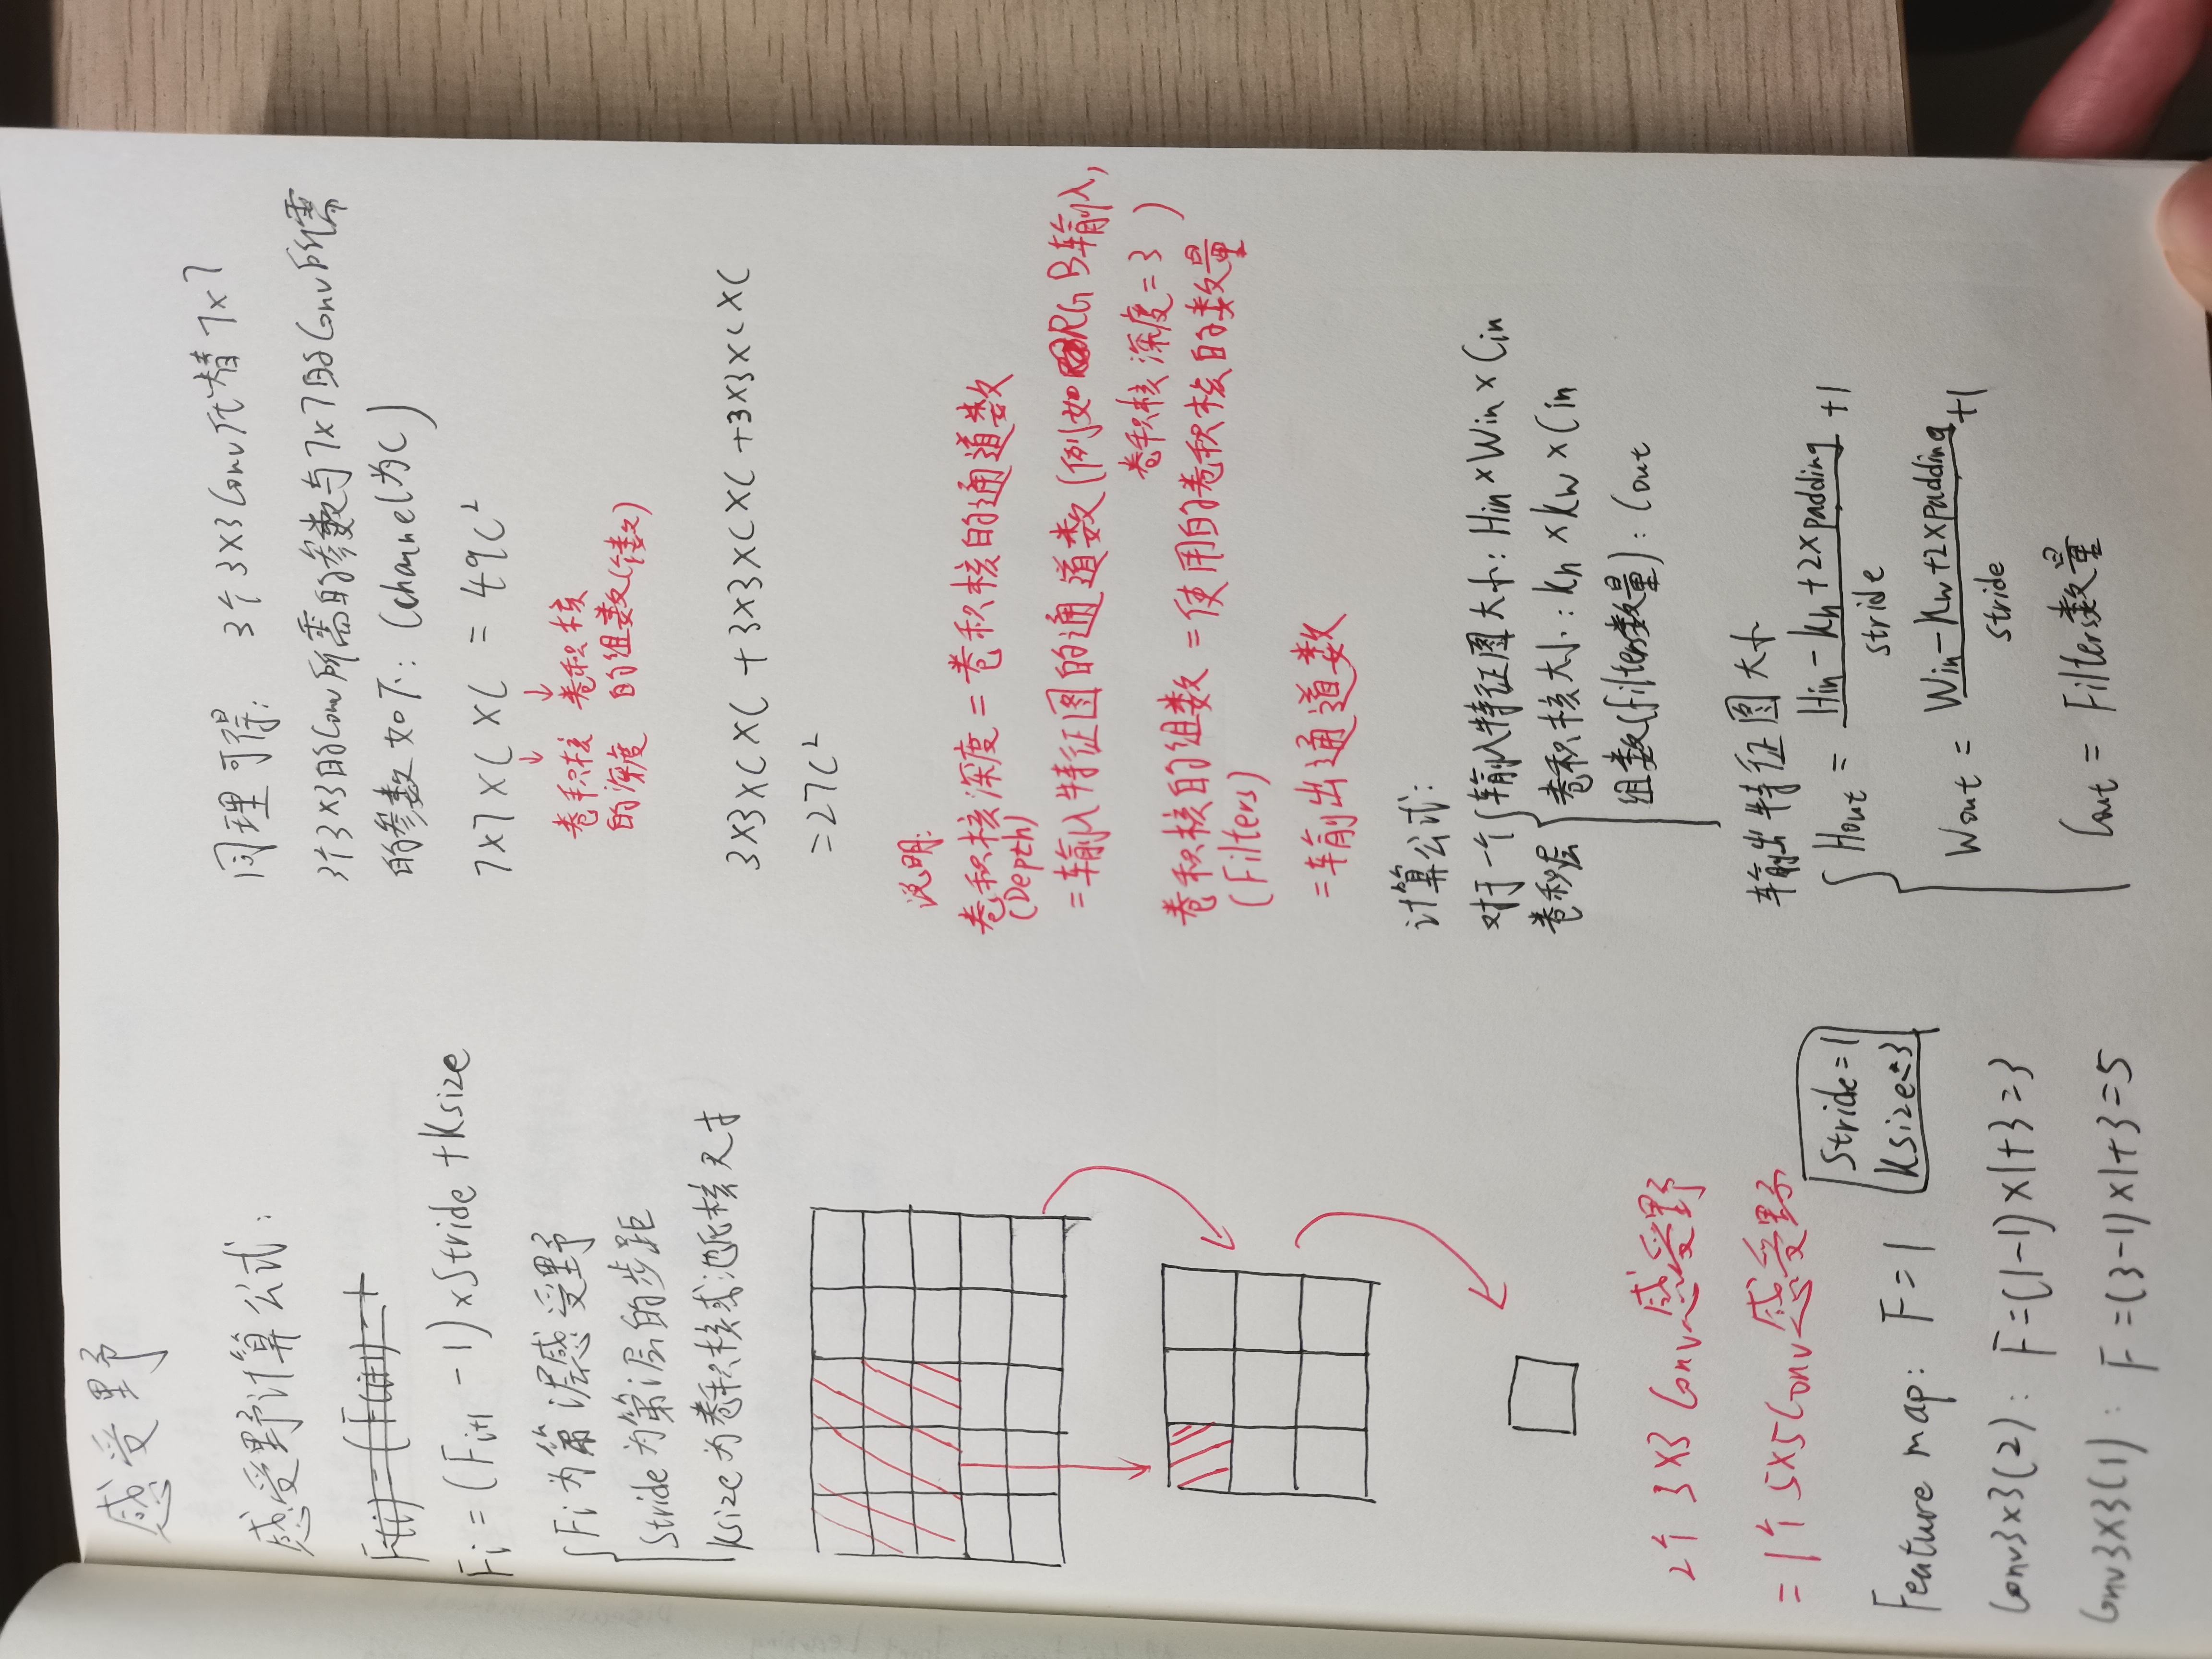 感受野
感受野计算公式:
F(i) = (F(i+1) - 1
Fi = (Fi+1 - 1) × Stride + Ksize
Fi为第i层感受野
Stride为第i层的步距
Ksize为卷积核或池化核尺寸
2个 3×3 Conv感受野
= 1个 5×5 Conv感受野
Stride = 1
Ksize = 3
Feature map: F = 1
Conv3×3(2): F = (1-1)×1+3 = 3
Conv3×3(1): F = (3-1)×1+3 = 5
同理可得: 3个3×3 Conv代替 7×7
3个3×3的Conv所需的参数与7×7的Conv所需
的参数如下: (channel为C)
7×7×C×C = 49C²
卷积核 卷积核
的深度 的组数(个数)
3×3×C×C + 3×3×C×C + 3×3×C×C
= 27C²
说明:
卷积核深度 = 卷积核的通道数
(Depth)
= 输入特征图的通道数(例如RGB输入,
卷积核深度 = 3 )
卷积核的组数 = 使用的卷积核的数量
(Filters)
= 输出通道数
计算公式:
对于一个 输入特征图大小: Hin × Win × Cin
卷积层 卷积核大小: kh × kw × Cin
组数(filters数量): Cout
输出特征图大小
Hout = Hin - kh + 2×padding / stride + 1
Wout = Win - kw + 2×padding / stride + 1
Cout = Filters数量